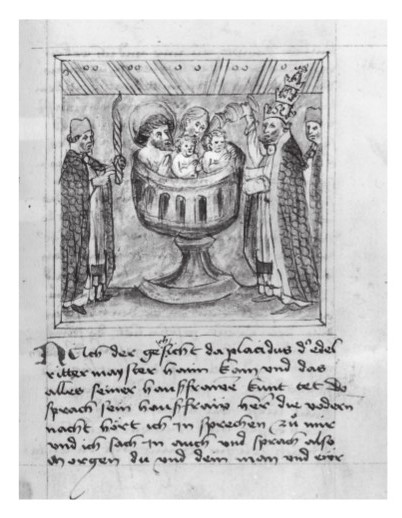 Nach der gesicht da placidus d' edel
ritter mayster haim kam vnd das
alles seiner hausfrawe kunt tet do
sprach sein hausfraw her die vodern
nacht hört ich in sprechen zů mir
vnd ich sach in auch vnd sprach also
morgen du vnd dein man vnd